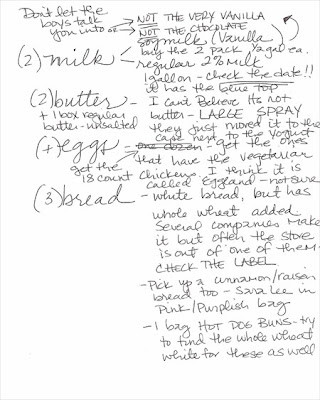 Don't let the
boys talk
you into or
NOT THE VERY VANILLA
NOT THE CHOCOLATE
soy milk (Vanilla)
buy the 2 pack ½ gal ea.
(2) milk - regular 2% milk
1 gallon - check the date!!
it has the blue top
(2) butter - I can't Believe Its not
+ 1 box regular
butter - unsalted
butter - LARGE SPRAY
they just moved it to the
case next to the yogurt
(+) eggs - one dozen get the ones
get the
18 count
that have the vegetarian
chickens. I think it is
called Eggland - not sure
(3) bread - white bread, but has
whole wheat added
Several companies make
it but often the store
is out of one of them-
CHECK THE LABEL
- Pick up a cinnamon/raisin
bread too - Sara Lee in
Pink/Purplish bag
- 1 bag HOT DOG BUNS - try
to find the whole wheat
white for these as well